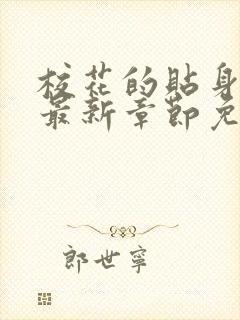 校花的贴身
最新章节免
郎世寧